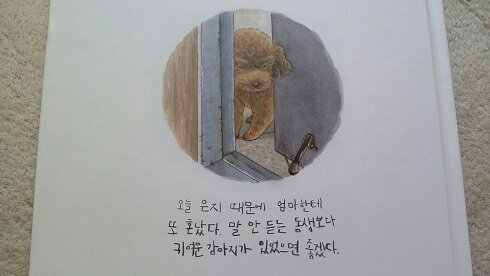 오늘 은지 때문에 엄마한테
또 혼났다. 말 안 듣는 동생보다
귀여운 강아지가 있었으면 좋겠다.